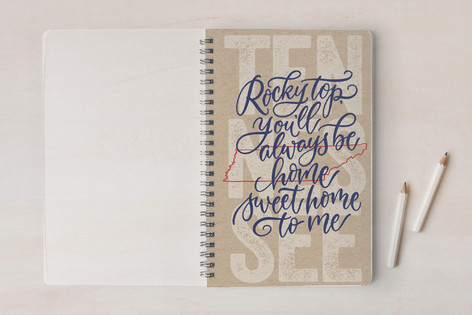 TEN
NES
SEE
Rocky top,
you'll
always be
home
sweet home
to me